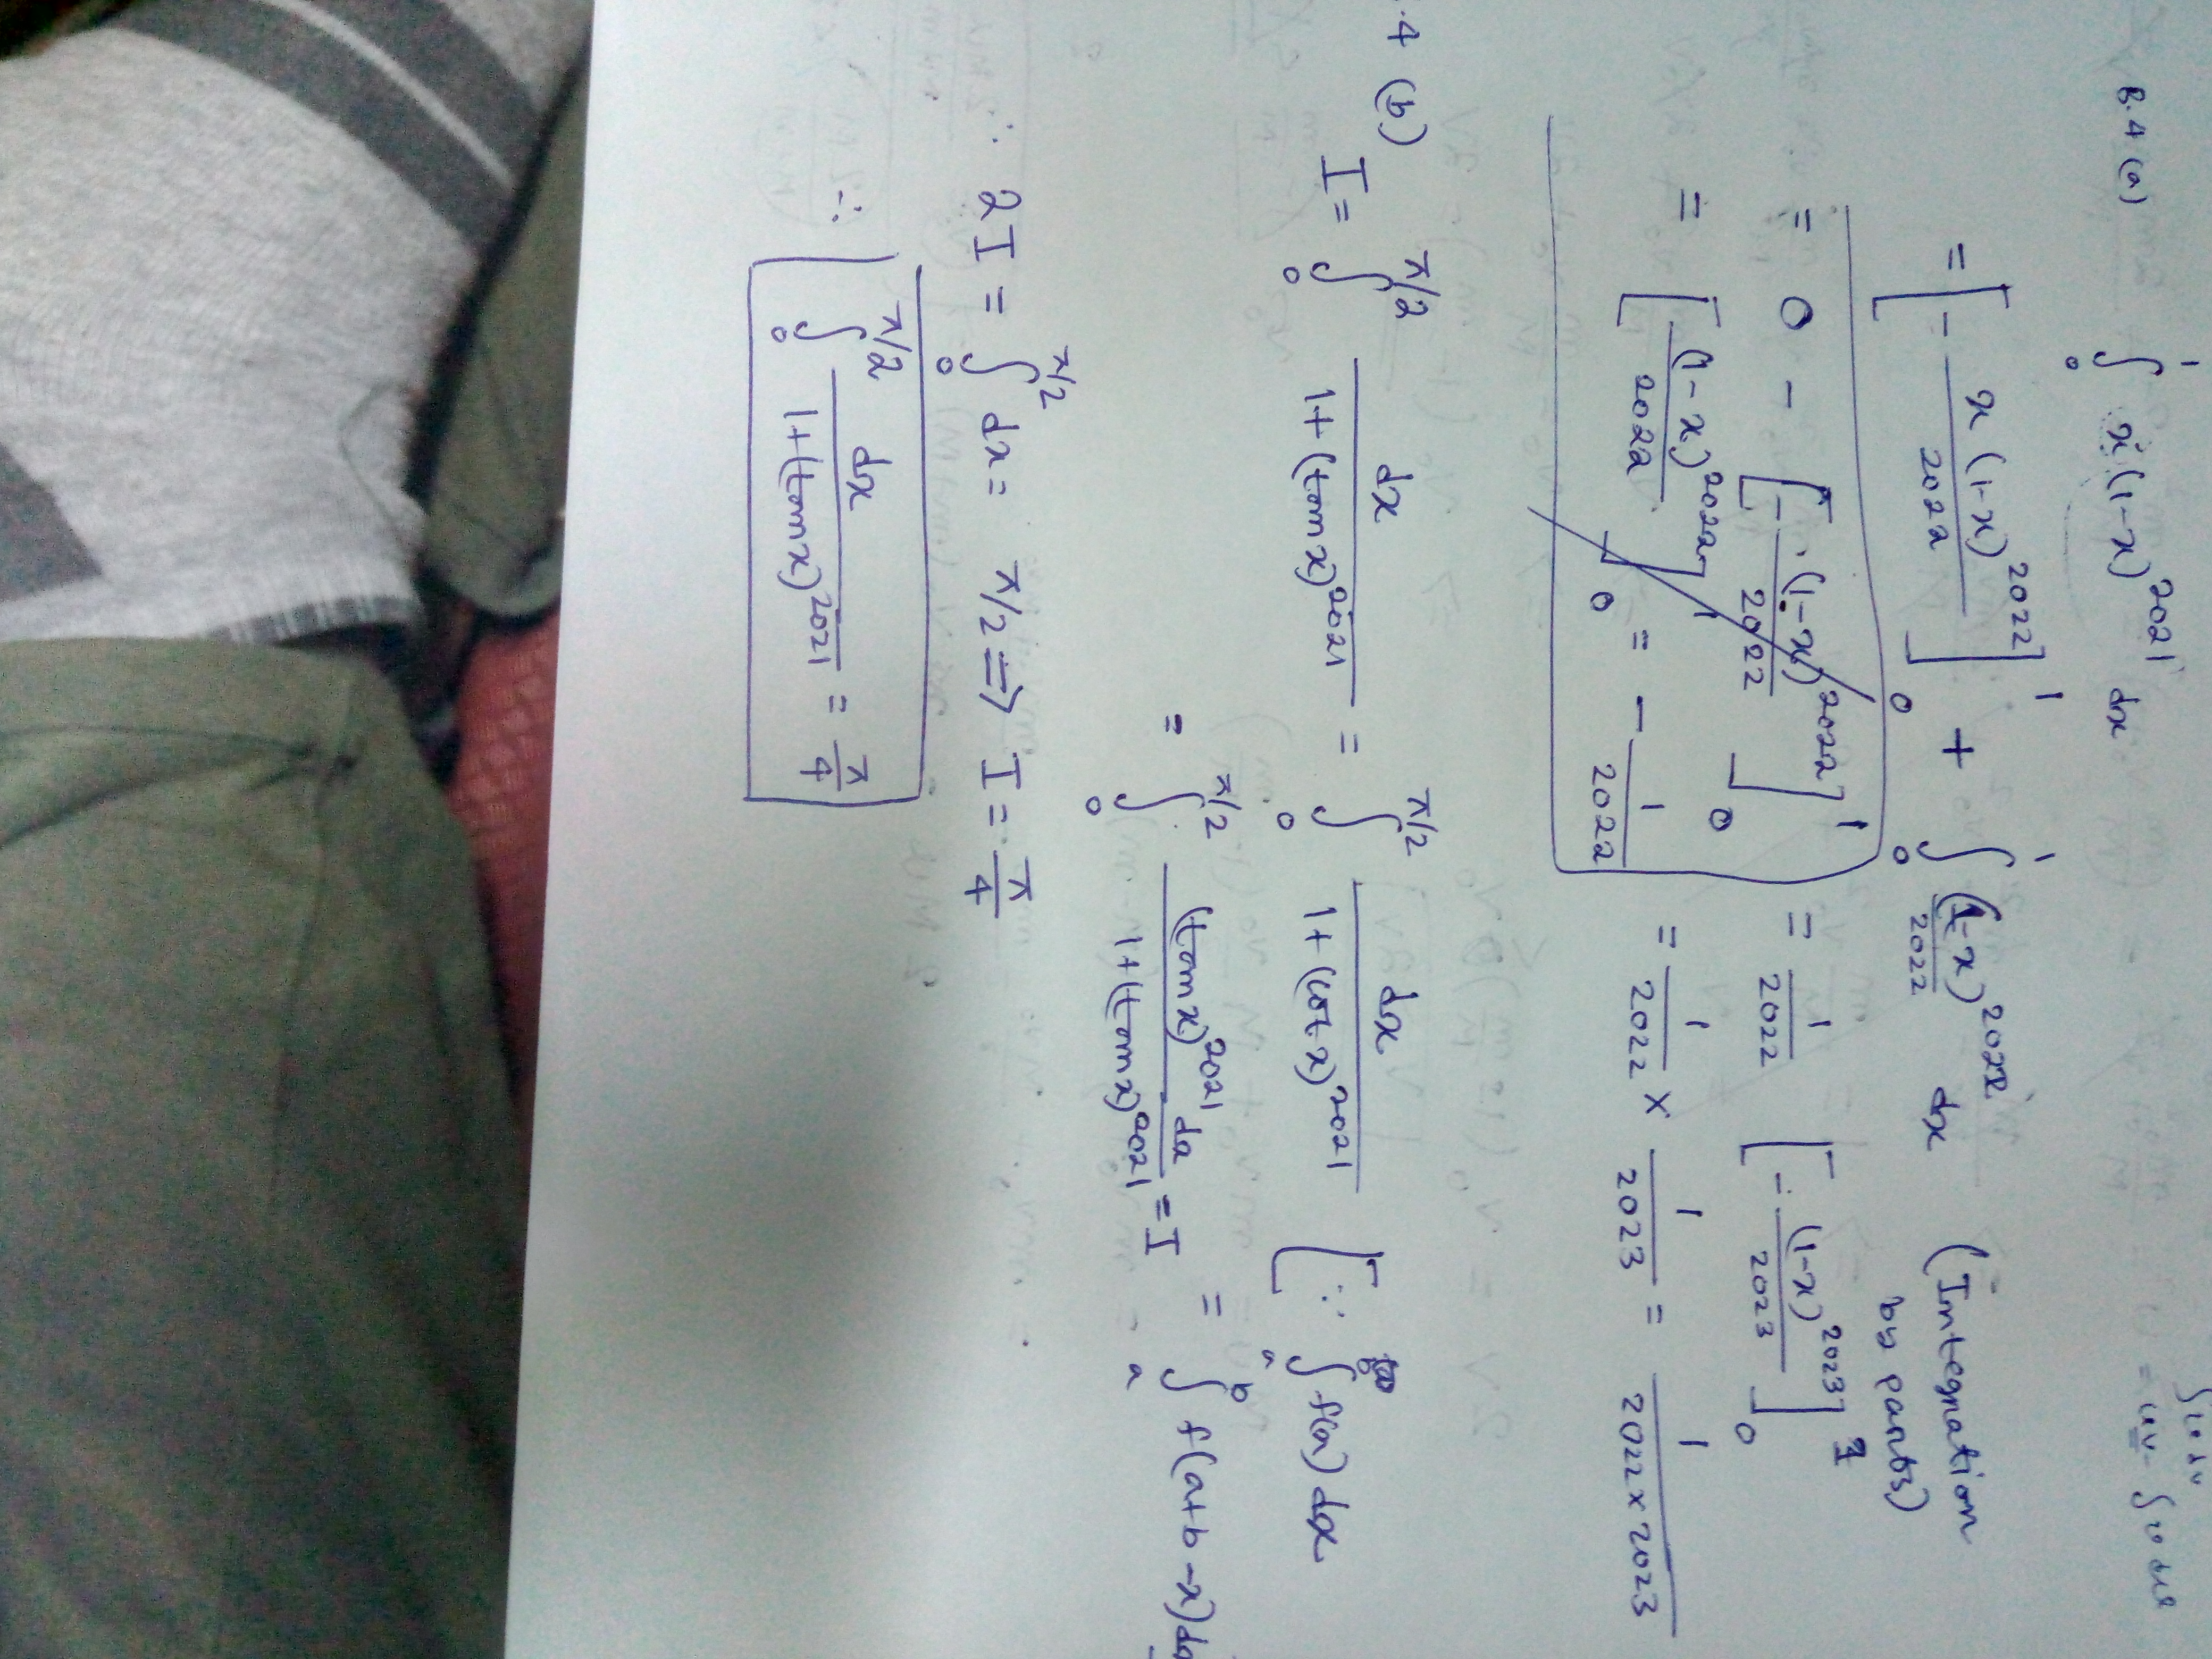 ∫udv
= uv - ∫vdu
B.4 (a) ∫₀¹ x(1-x)²⁰²¹ dx
= [- x(1-x)²⁰²²/2022]₀¹ + ∫₀¹ (1-x)²⁰²²/2022 dx (Integration by parts)
= 0 - [- (1-x)²⁰²²/2022]₀¹ = 1/2022 [- (1-x)²⁰²³/2023]₀¹
= [(1-x)²⁰²²/2022]₀¹ = - 1/2022 = 1/2022 × 1/2023 = 1/2022×2023
.4 (b) I = ∫₀^π/2 dx/1+(tan x)²⁰²¹ = ∫₀^π/2 dx/1+(cot x)²⁰²¹ [∵ ∫ₐᵇ f(x) dx
= ∫₀^π/2 (tan x)²⁰²¹ dx/1+(tan x)²⁰²¹ = I = ∫ₐᵇ f(a+b-x)dx
∴ 2I = ∫₀^π/2 dx = π/2 ⇒ I = π/4
∴ ∫₀^π/2 dx/1+(tan x)²⁰²¹ = π/4